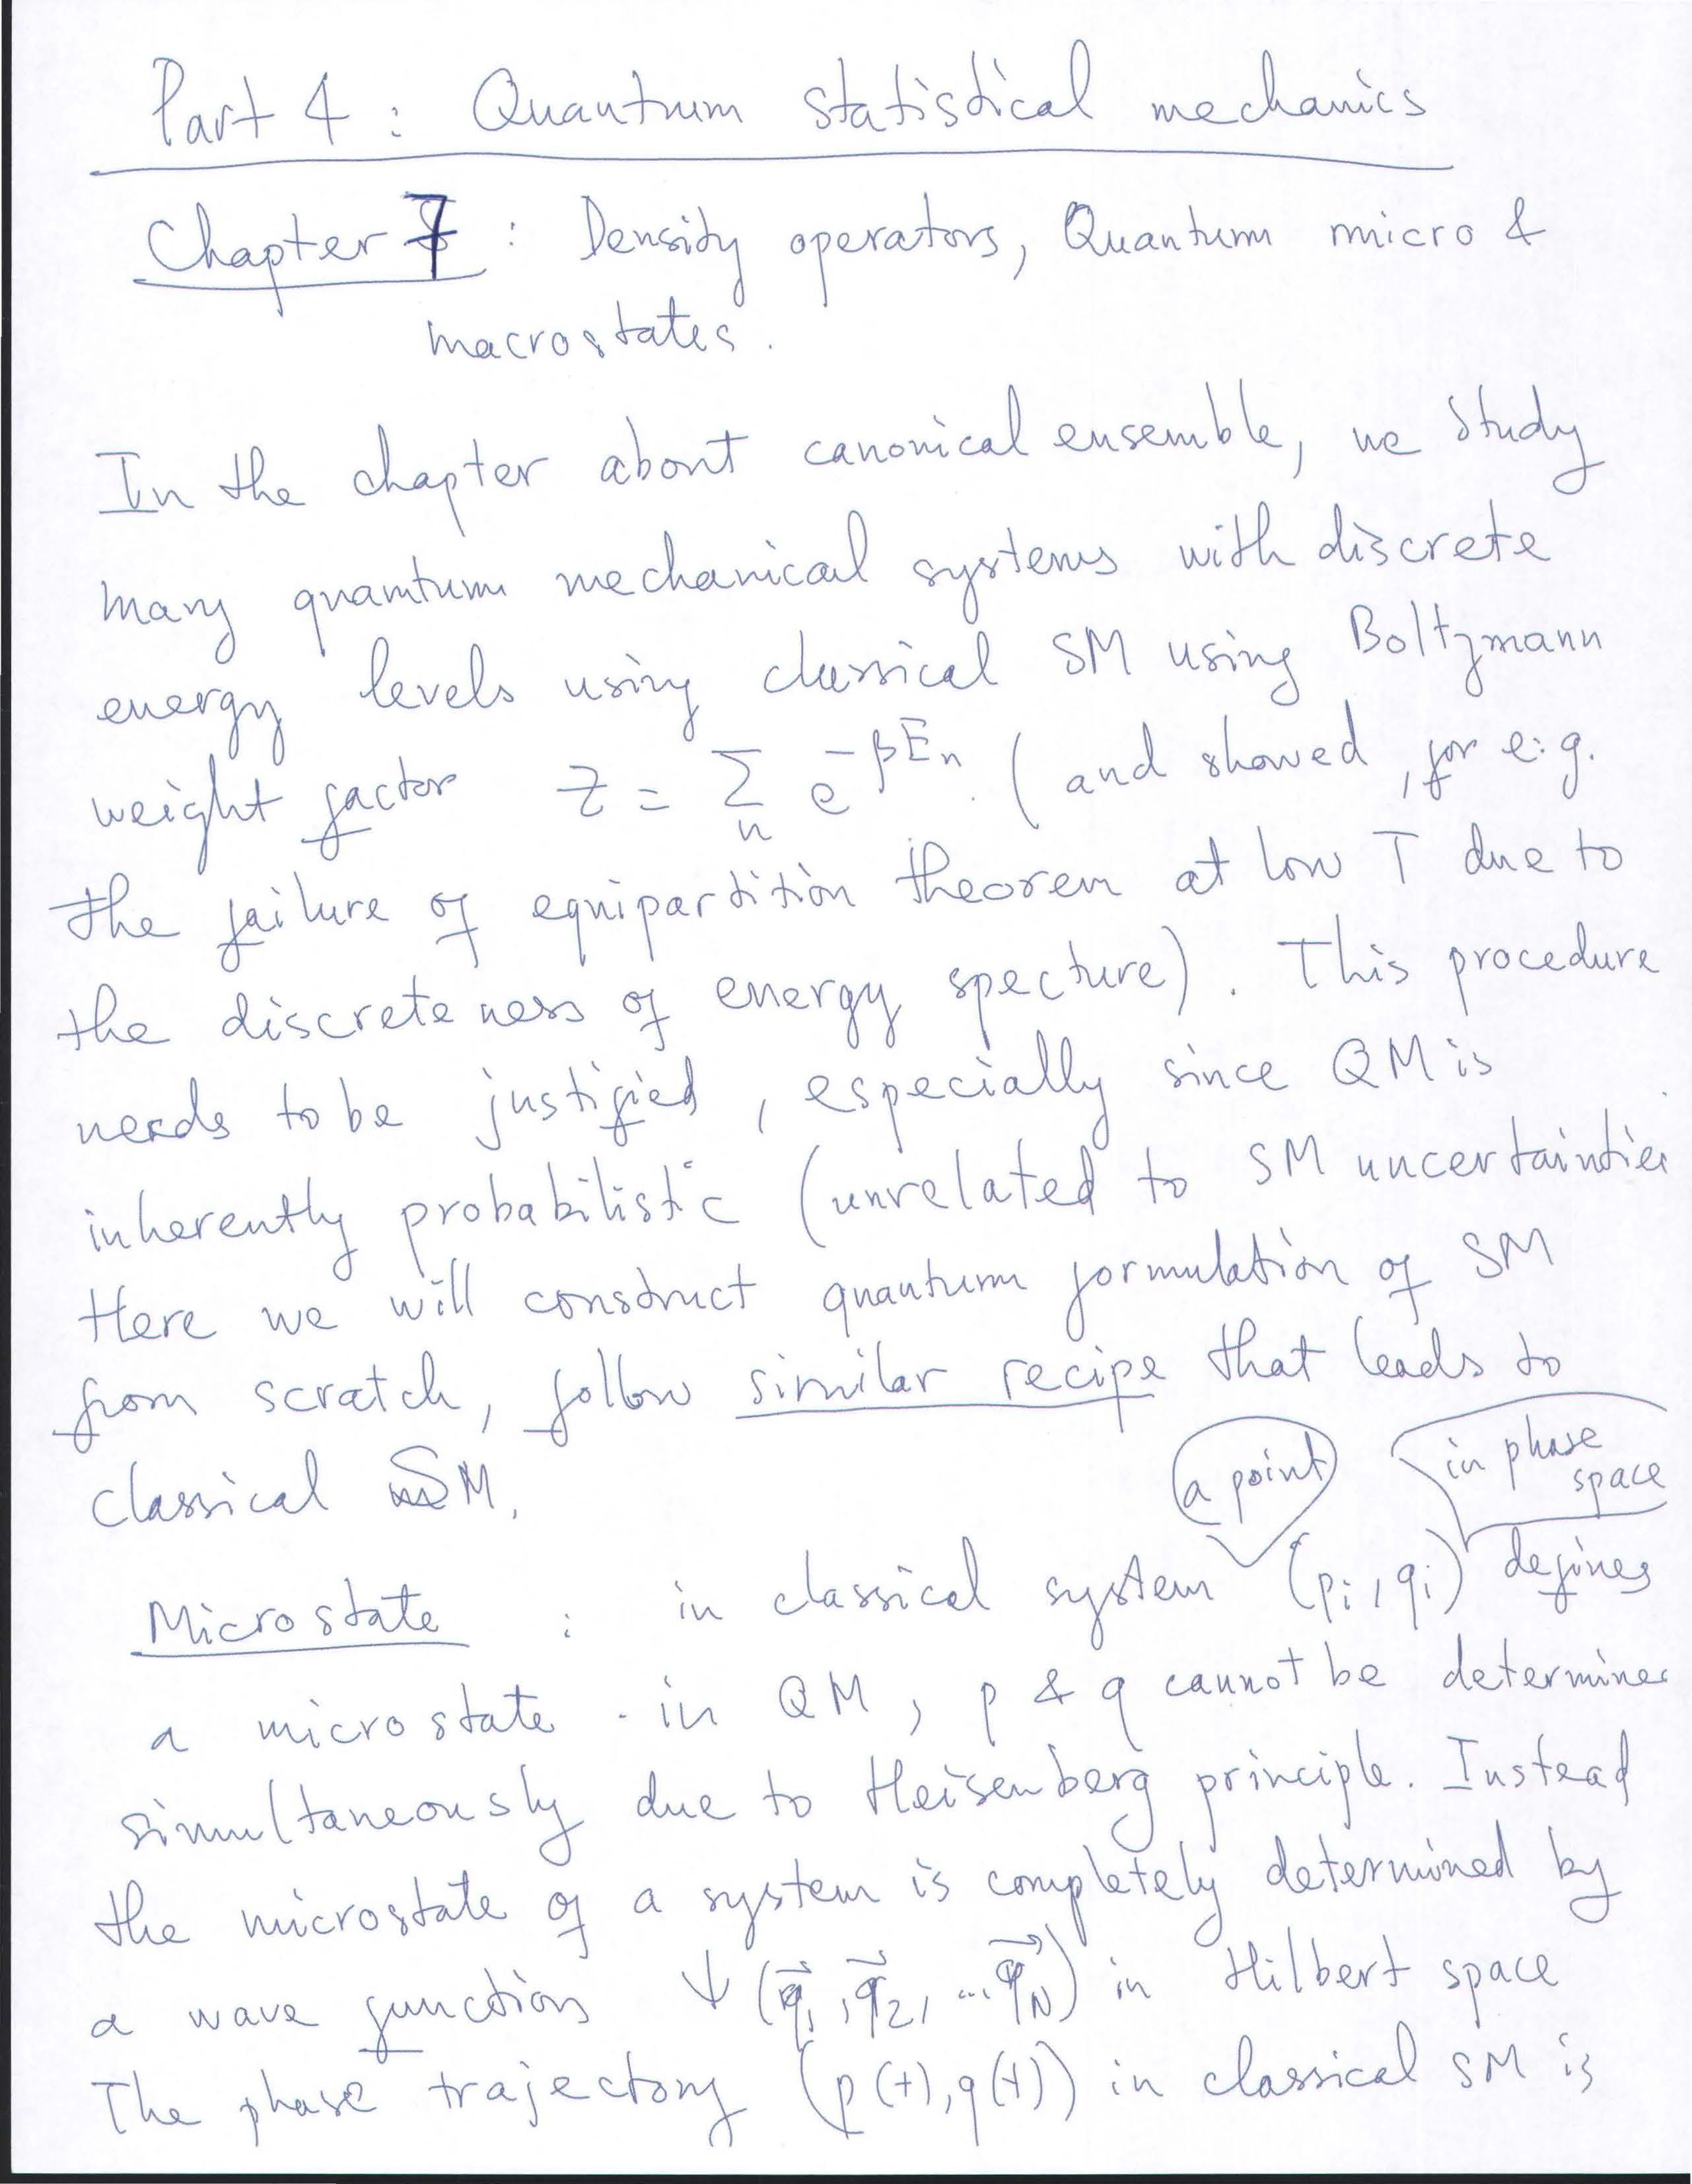 Part 4 : Quantum statistical mechanics
Chapter 7 : Density operators, Quantum micro &
macrostates.
In the chapter about canonical ensemble, we study
many quantum mechanical systems with discrete
energy levels using classical SM using Boltzmann
weight factor Z = Σ_n e^{-βE_n}. (and showed, for e.g.
the failure of equipartition theorem at low T due to
the discreteness of energy specture). This procedure
needs to be justified, especially since QM is
inherently probabilistic (unrelated to SM uncertainties
Here we will construct quantum formulation of SM
from scratch, follow similar recipe that leads to
classical SM.
a point in phase space
Microstate : in classical system (p_i, q_i) defines
a microstate. in QM, p & q cannot be determine
simultaneously due to Heisenberg principle. Instead
the microstate of a system is completely determined by
a wave function ψ(q⃗_1, q⃗_2, ... q⃗_N) in Hilbert space
The phase trajectory (p(t), q(t)) in classical SM is